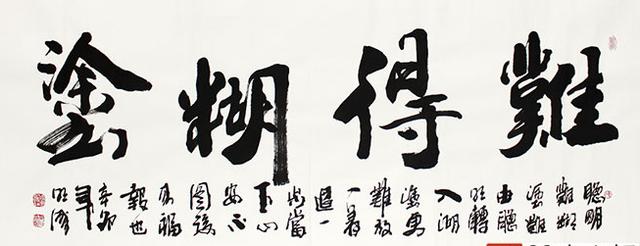 難得糊塗
聰明
難糊
塗難
由聰
明轉
入糊
塗更
難放
一着
退一
步當
下心
安非
圖後
來福
報也
辛卯
年